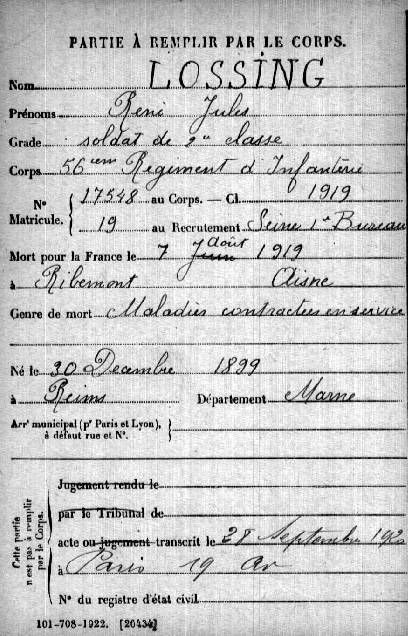 PARTIE À REMPLIR PAR LE CORPS.
Nom LOSSING
Prénoms René Jules
Grade soldat de 2e classe
Corps 56eme Régiment d'Infanterie
N° Matricule. { 17548 au Corps. — Cl. 1919
19 au Recrutement Seine 1er Bureau
Mort pour la France le 7 Juin Août 1919
à Ribemont Aisne
Genre de mort Maladies contractées en service
Né le 30 Decembre 1899
à Reims Département Marne
Arr' municipal (p' Paris et Lyon), à défaut rue et N°. }
Cette partie n'est pas à remplir par le Corps.
Jugement rendu le
par le Tribunal de
acte ou jugement transcrit le 28 Septembre 1920
à Paris 19 Ar
N° du registre d'état civil
101-708-1922. [26434]